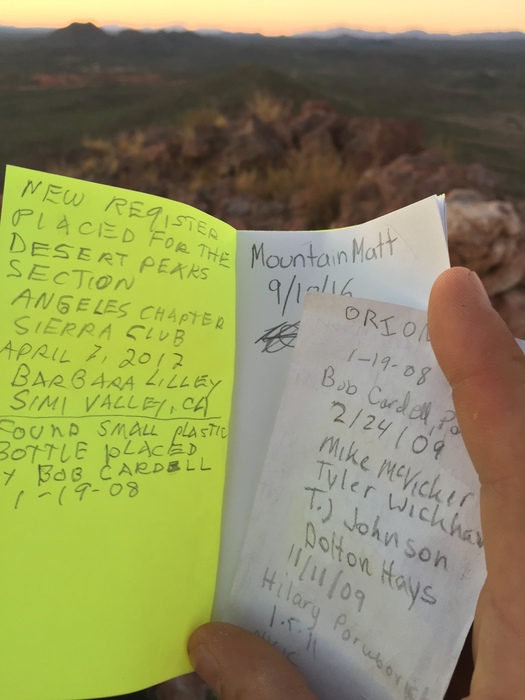 NEW REGISTER
PLACED FOR THE
DESERT PEAKS
SECTION
ANGELES CHAPTER
SIERRA CLUB
APRIL 7, 2012
BARBARA LILLEY
SIMI VALLEY, CA
FOUND SMALL PLASTIC
BOTTLE PLACED
Y BOB CARDELL
1-19-08
MountainMatt
ORION
1-19-08
Bob Cardell, Po
2/24/09
Mike McVicker
Tyler Wickham
T.J Johnson
Dolton Hays
11/11/09
Hilary
1.5.11